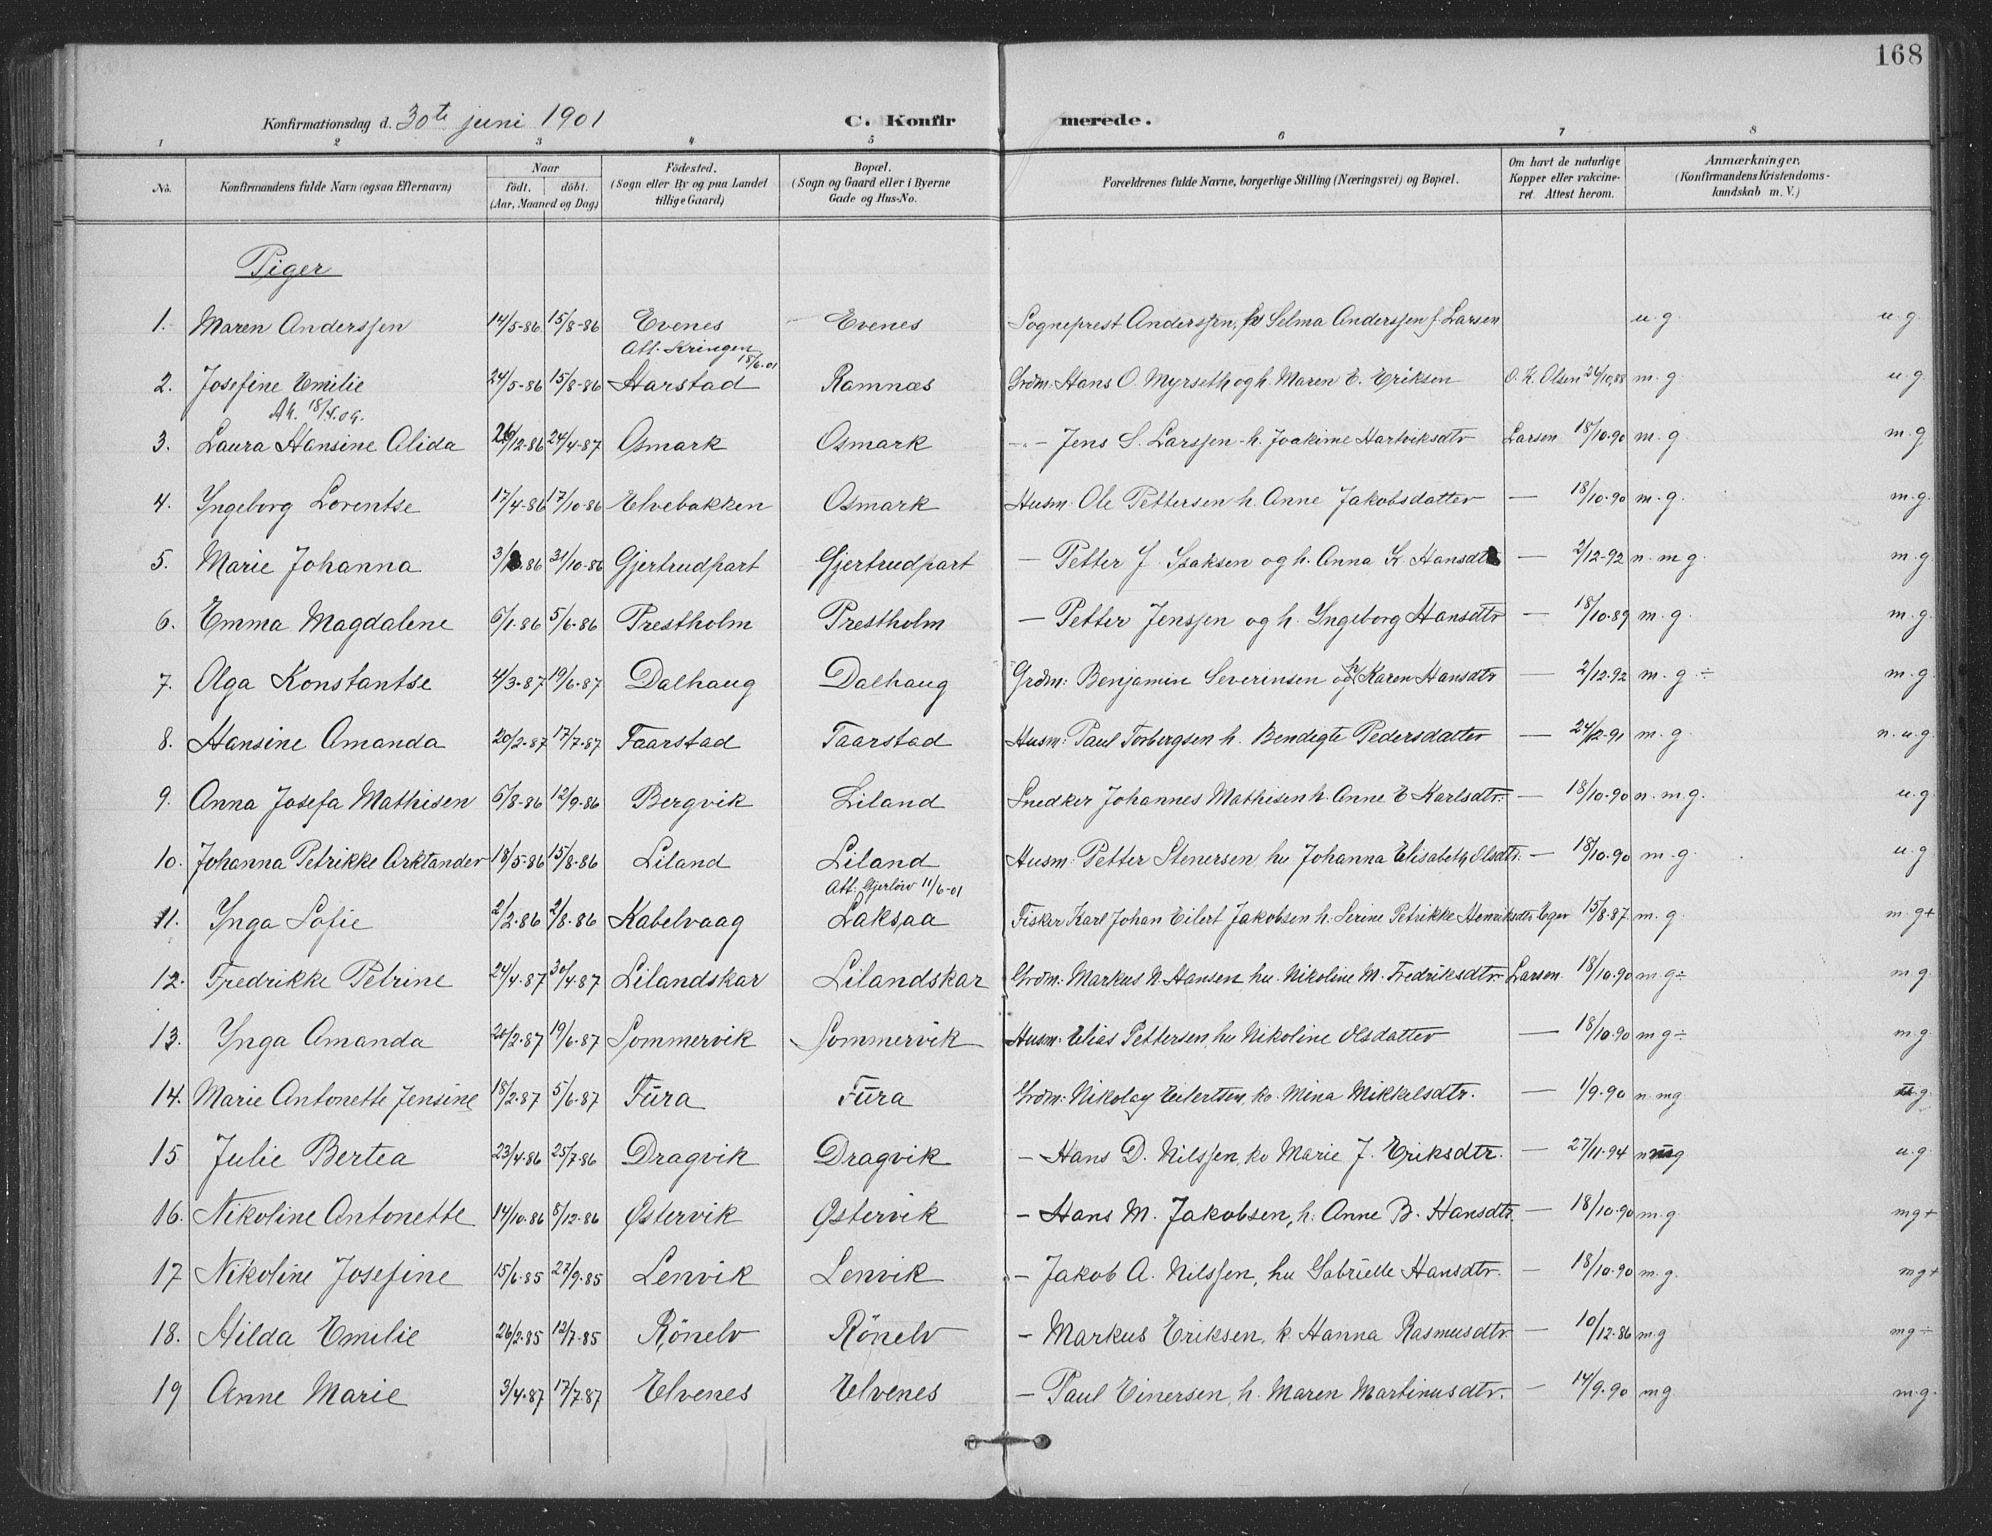 168
Konfirmationsdag d. 30te juni 1901 C. Konfir merede.
1 2 3 4 5 6 7 8
No. Konfirmandens fulde Navn (ogsaa Efternavn) Naar født. døbt. (Aar, Maaned og Dag) Fødested. (Sogn eller By og paa Landet tillige Gaard) Bopæl. (Sogn og Gaard eller i Byerne Gade og Hus-No. Forældrenes fulde Navne, borgerlige Stilling (Næringsvei) og Bopæl. Om havt de naturlige Kopper eller vakcineret. Attest herom. Anmærkninger. (Konfirmandens Kristendomskundskab m. V.)
Piger
1. Maren Anderssen 14/5-86 15/8-86 Evenes Evenes Sogneprest Anderssen, Selma Anderssen f. Larsen u.g. u.g.
Att. Kringen 18/6-01
2. Josefine Emilie 24/5-86 15/8-86 Harstad Ramnæs Grdm: Hans O. Myrseth og h. Maren E. Eriksen O. K. Olsen 26/10.88 m.g. u.g.
18/4.09.
3. Laura Hansine Alida 26/12-86 24/4-87 Osmark Osmark -"- Jens S. Larssen h. Joakime Hartviksdtr Larsen 18/10.90 m.g m.g
4. Ingeborg Lorentse 17/4-86 17/10-86 Elvebakken Osmark Husm: Ole Pettersen h. Anne Jakobsdatter — 18/10.90 m.g. m.g.
5. Marie Johanna 31/10-86 Gjertrudpart Gjertrudpart — Petter J. Isaksen og h. Anna K. Hansdtr — 2/12-92 n. m.g. m.g
6. Emma Magdalene 6/1.86 5/6.86 Prestholm Prestholm — Petter Jenssen og h. Ingeborg Hansdtr — 18/10.89 m.g. m.g.
7. Olga Konstantse 4/3.87 19/6.87 Dalhaug Dalhaug Grdm: Benjamin Severinsen og Karen Hansdtr — 2/12.92 m.g ÷ m.g.
8. Hansine Amanda 20/2.87 17/7-87 Taarstad Taarstad Husm: Paul Torbergsen h. Bendegte Pedersdatter — 24/12.91 m.g. n.u.g.
9. Anna Josefa Mathisen 6/8-86 12/9-86 Bergvik Liland Snedker Johannes Mathisen h. Anne E Karlsdtr. — 18/10.90 n.m.g. u.g.
10. Johanna Petrikke Arktander 18/5-86 15/8-86 Liland Liland Husm: Petter Stenersen hu Johanna Elisabeth Olsdtr. — 18/10.90 m.g. u.g
Att. Gjerlöw 11/6-01
11. Inga Sofie 2/2.86 2/8.86 Kabelvaag Laksaa Fisker Karl Johan Eilert Jakobsen h. Serine Petrikke Henriksdtr Eger 15/8.87 m.g. m.g+
12. Fredrikke Petrine 24/4.87 30/4.87 Lilandskar Lilandskar Grdm: Markus N. Hansen, hu. Nikoline M. Fredriksdtr. Larsen. 18/10.90 m.g÷ m.g.
13. Inga Amanda 20/2.87 19/6.87 Sommervik Sommervik Husm: Elias Pettersen, hu Nikoline Olsdatter — 18/10.90 m.g÷ m.g.
14. Marie Antonette Jensine 18/2.87 5/6.87 Fūra Fūra Grdm: Nikolay Eilertsen, ko. Mina Mikkelsdtr. — 1/9.90 n.mg g.
15 Julie Bertea 23/4.86 25/7.86 Dragvik Dragvik — Hans D. Nilssen, ko Marie J. Eriksdtr. — 27/11.94 nmg u.g.
16. Nikoline Antonette 14/10.86 8/12.86 Østervik Østervik — Hans M. Jakobsen, h. Anne B. Hansdtr. — 18/10.90 m.g. mg+
17 Nikoline Josefine 15/6.85 27/9.85 Lenvik Lenvik — Jakob A. Nilssen, hu Gabrielle Hansdtr. — 18/10.90 m.g. mg+
18. Hilda Emilie 26/2.85 12/7.85 Rönelv Rönelv — Markus Eriksen, k. Hanna Rasmusdtr — 10/12.86 m.g mg÷
19 Anne Marie 3/4.87 17/7.87 Elvenes Elvenes — Paul Einersen, h. Maren Martinusdtr. — 14/9.90 mg m.g.